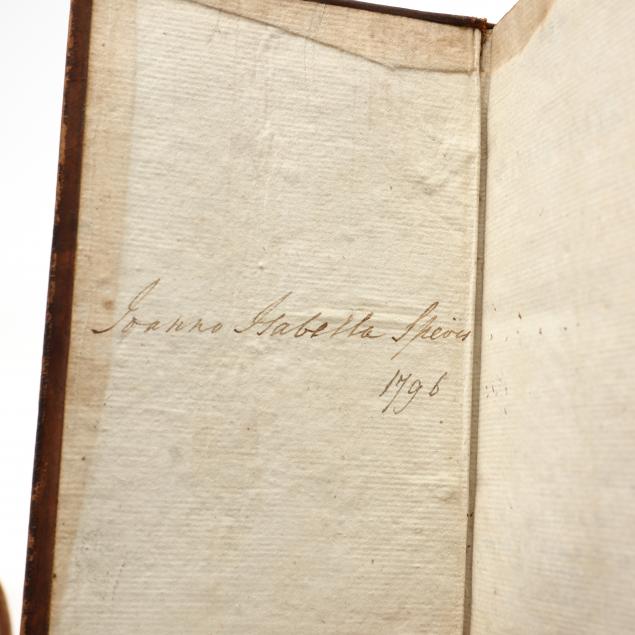 Joanna Isabella Speirs
1796